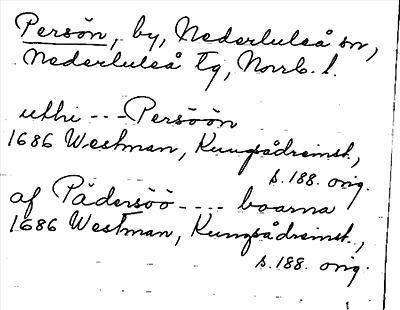 Persön, by, Nederluleå sn,
Nederluleå tg, Norrb. l.
uthi --- Persöön
1686 Westman, Kungsådreinst.,
s. 188. orig.
af Pådersöö ---- boarna
1686 Westman, Kungsådreinst.,
s. 188. orig.